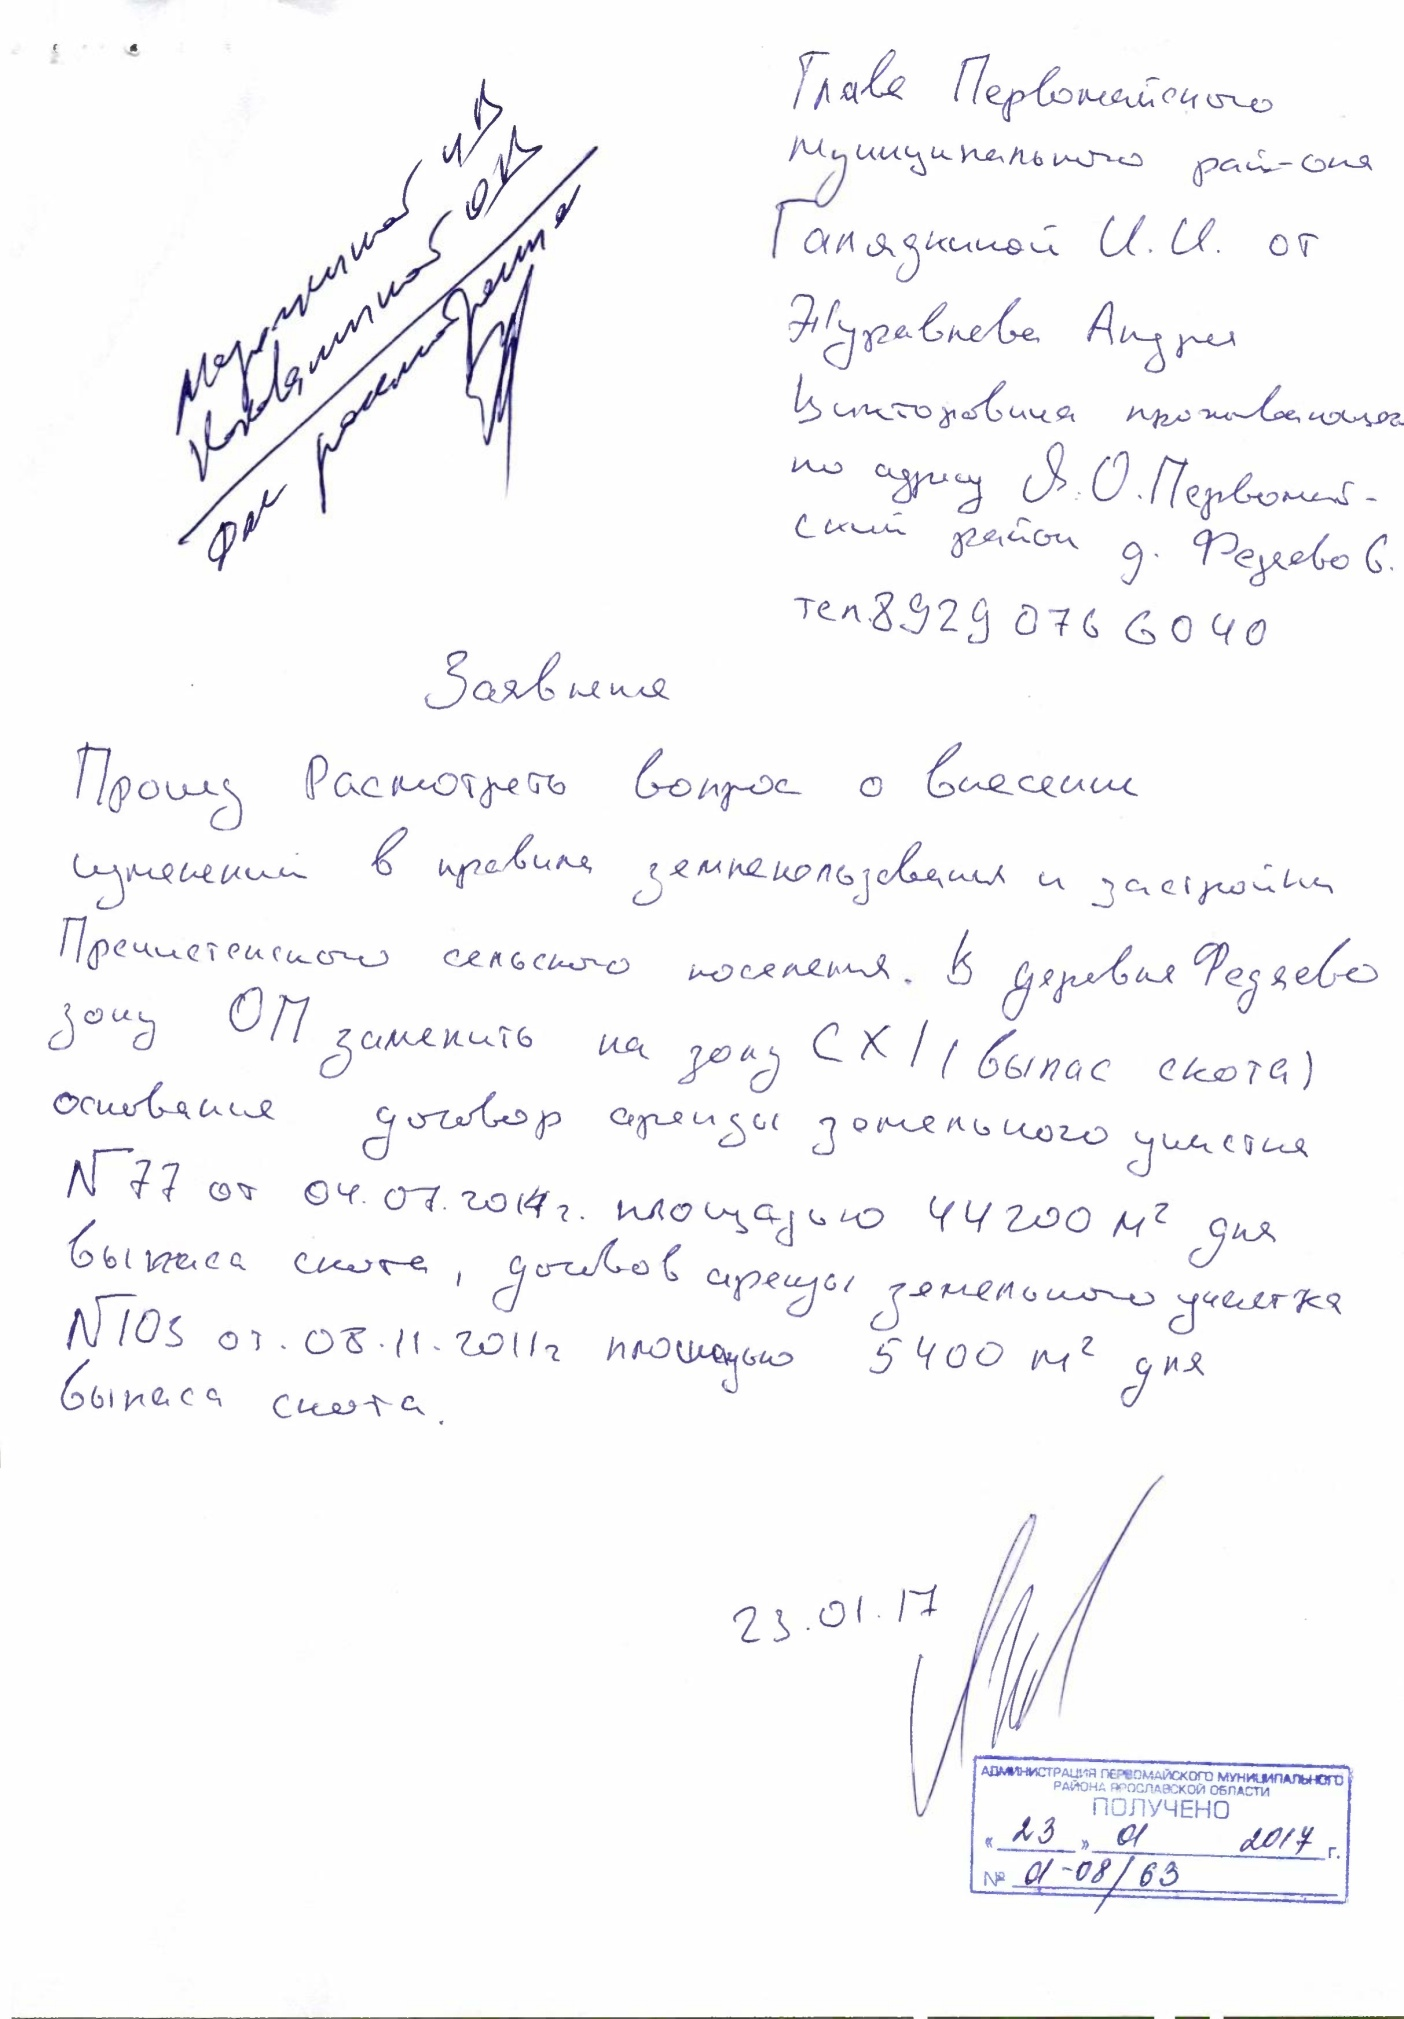 Глава Первомайского
муниципального рай-она
Гапядкиной И.И. от
Журавлева Андрея
Викторовича проживающего
по адресу Я.О. Первомай-
ский район д. Федяево 6.
тел. 8929 076 6040
для рассмотрения
Заявления
Прошу Расмотреть вопрос о внесении
изменений в правила землепользования и застройки
Пречистенского сельского поселения. В деревня Федяево
зону ОП заменить на зону СХ1 (выпас скота)
основание договор аренды земельного участка
N 77 от 04.07.2014г. площадью 44200 м² для
выпаса скота, договов аренды земельного участка
N103 от. 08.11.2011г площадью 5400 м² для
выпаса скота.
23.01.17
АДМИНИСТРАЦИЯ ПЕРВОМАЙСКОГО МУНИЦИПАЛЬНОГО
РАЙОНА ЯРОСЛАВСКОЙ ОБЛАСТИ
ПОЛУЧЕНО
« 23 » 01 2017 г.
№ 01-08/63